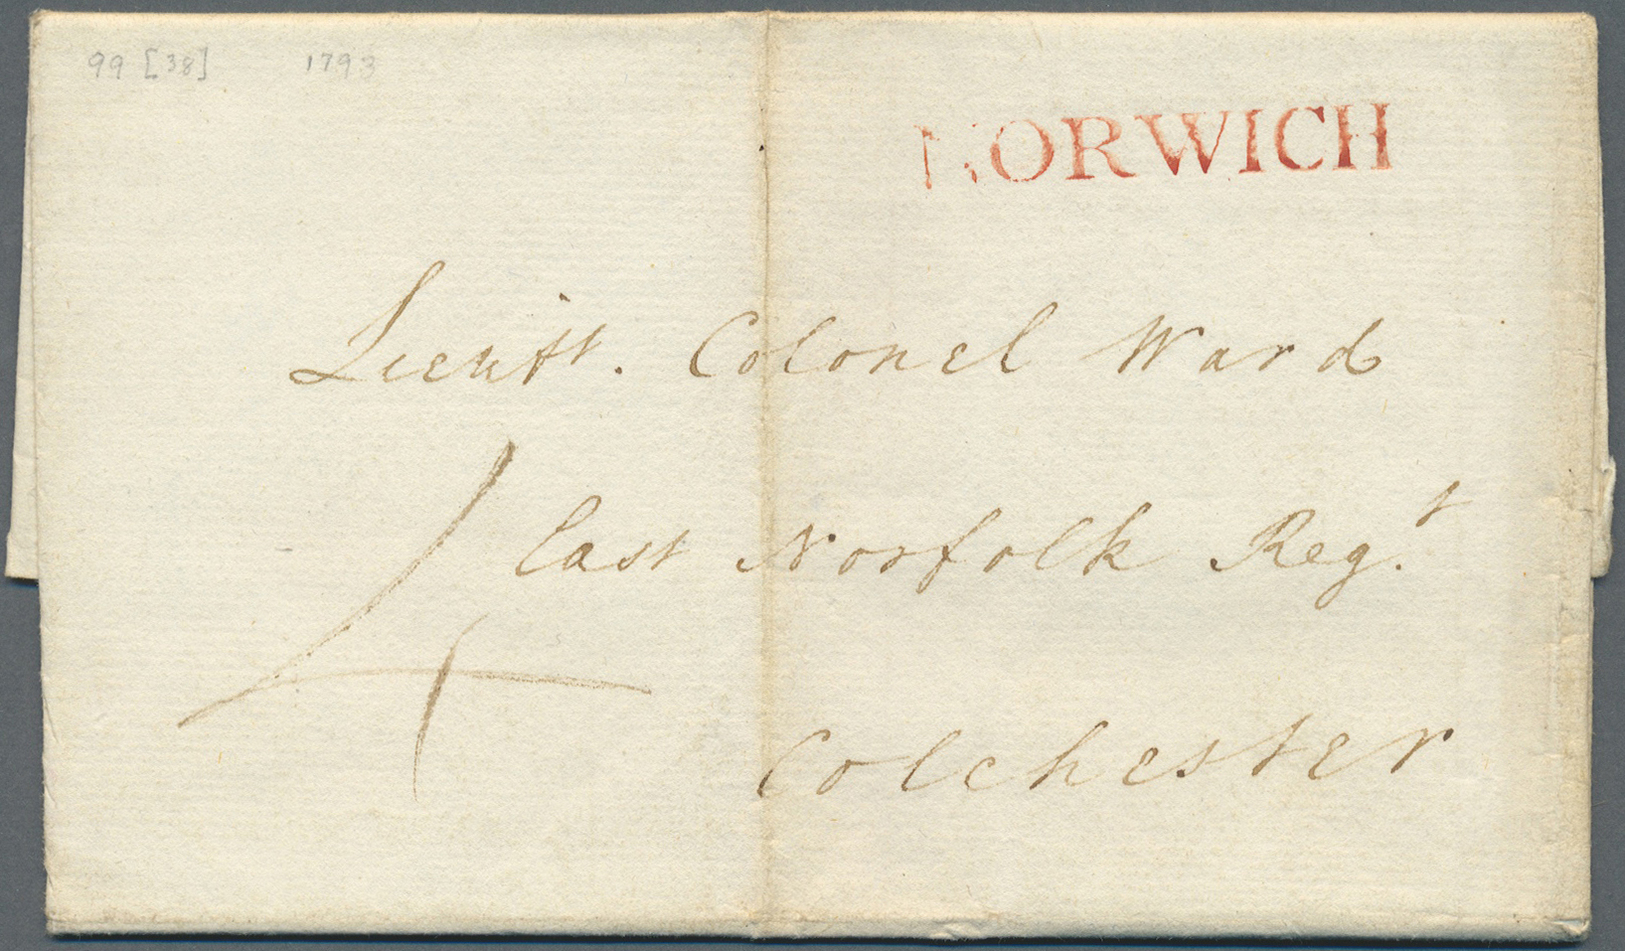 99 [38] 1793
NORWICH
Lieutt. Colonel Ward
East Norfolk Regt.
4
Colchester